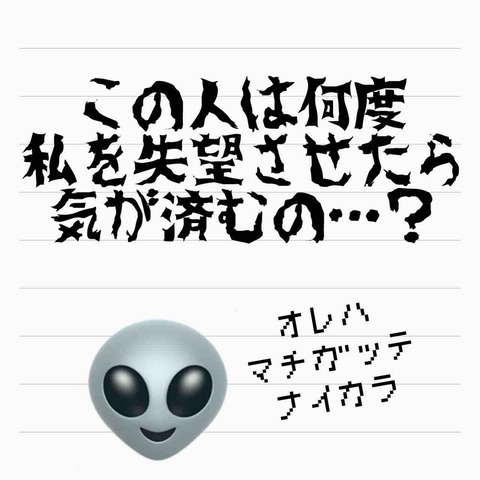 この人は何度
私を失望させたら
気が済むの…?
オレハ
マチガッテ
ナイカラ